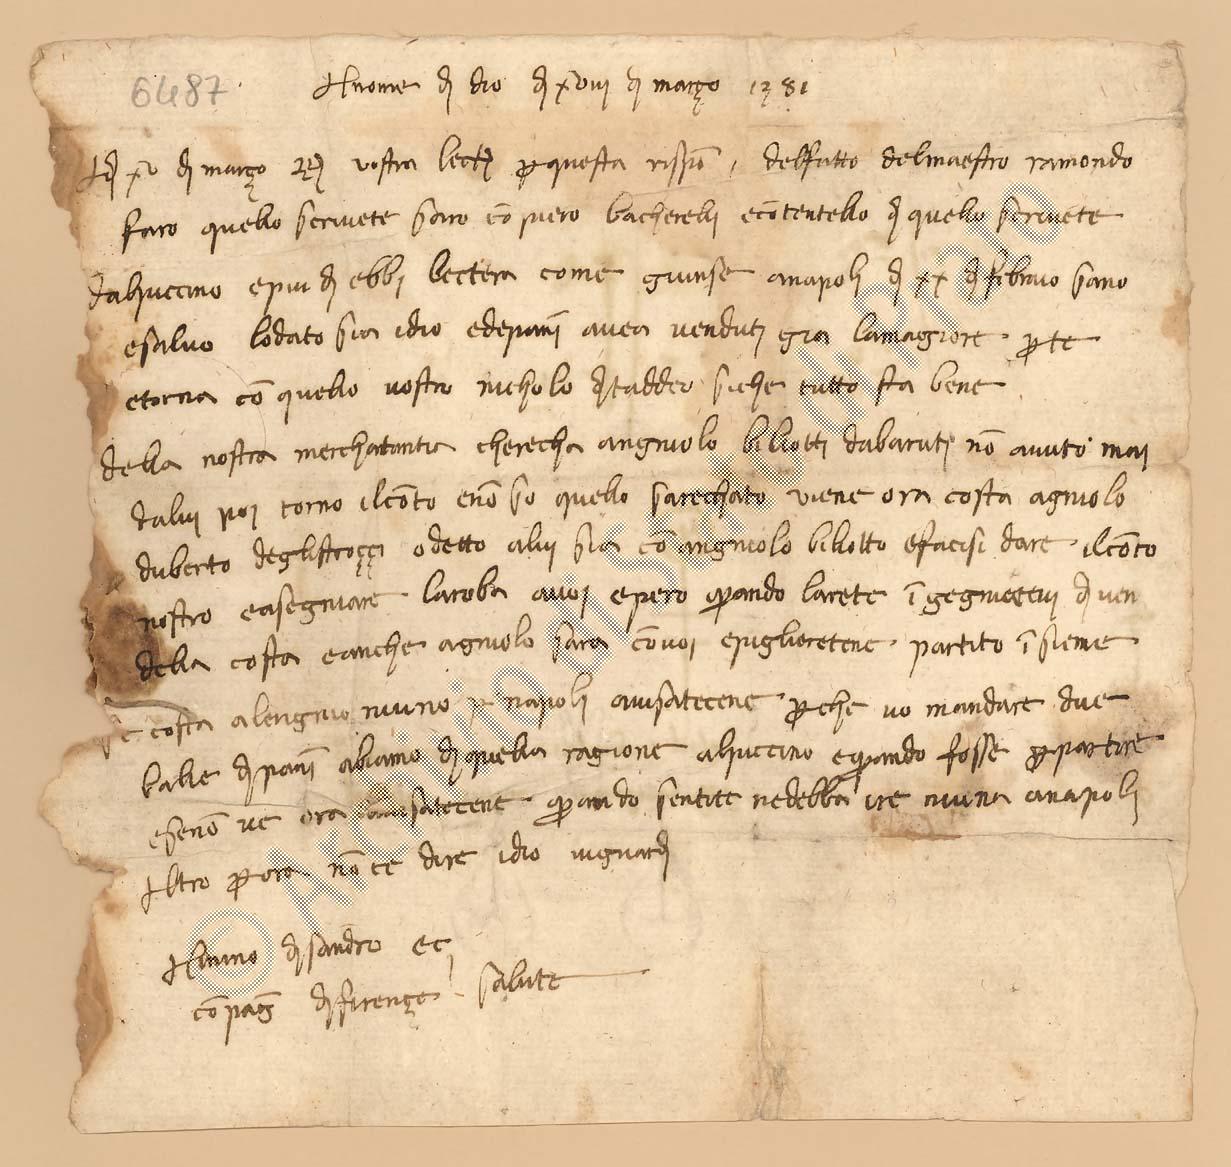 6487
Al nome di dio di xviii di março 1381
A dì xv di março rē vostra lectª per questa rispō. delfatto delmaestro ramondo
faro quello scrivete saro cō piero bacherelli econtentello di quello scrivete
dalpuccino epiu dì ebbi lectera come giunse anapoli dì xx di febraio sano
esalvo lodato sia idio edepanī avea venduti gra lamagiore parte
etorna cō quello vostro nicholo ditaddeo siche tutto sta bene
della nostra merchatantia cherecha angniolo biliotti dabaruti nō avuto mai
dalui poi torno ilcōto enō so quello sarechato viene ora costa agniolo
duberto deglistroççi odetto alui sia cō angniolo biliotto efacisi dare ilcōto
nostro easegniare laroba avoi epero quando larete īgegniatevi di ven
della costa eanche agniolo sara cōvoi epigliretene partito īsieme
Se costa alengnio niuno per napoli avisatecene perche vo mandare due
balle dipanī abiamo diquella ragione alpuccino equando fosse per partire
esenō ve ora avisatecene quando sentite nedebba ire niuna anapoli
Altro per ora nōcce dire idio viguardi
Nuno disandro ec
cōpag̃ difirençe salute
© Archivio di Stato di Prato